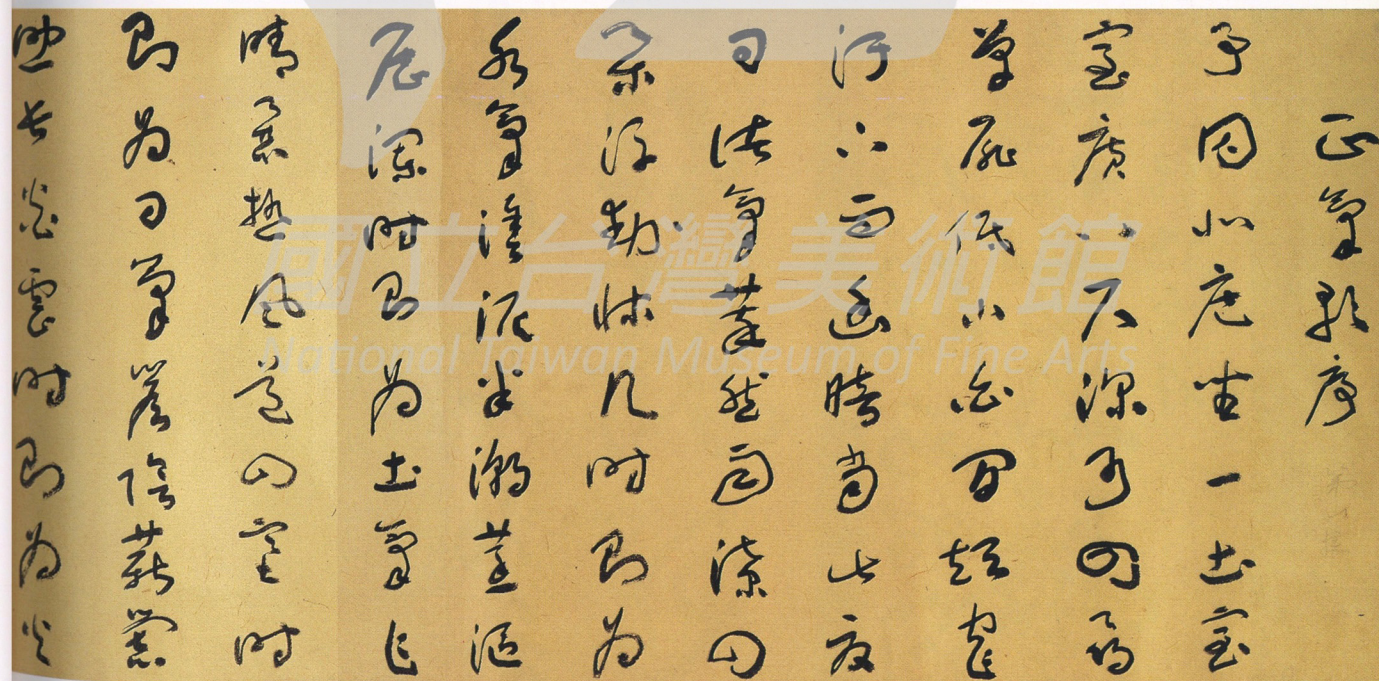 正氣歌序
予囚北庭坐一土室
室廣八尺深可四尋
單扉低小白間短窄
汙下而幽暗當此夏
日諸氣萃然雨潦四
集浮動牀几時則為
水氣塗泥半潮蒸漚
歷瀾時則為土氣乍
晴暴熱風道四塞時
則為日氣簷陰薪爨
助長炎虐時則為火
國立台灣美術館
National Taiwan Museum of Fine Arts